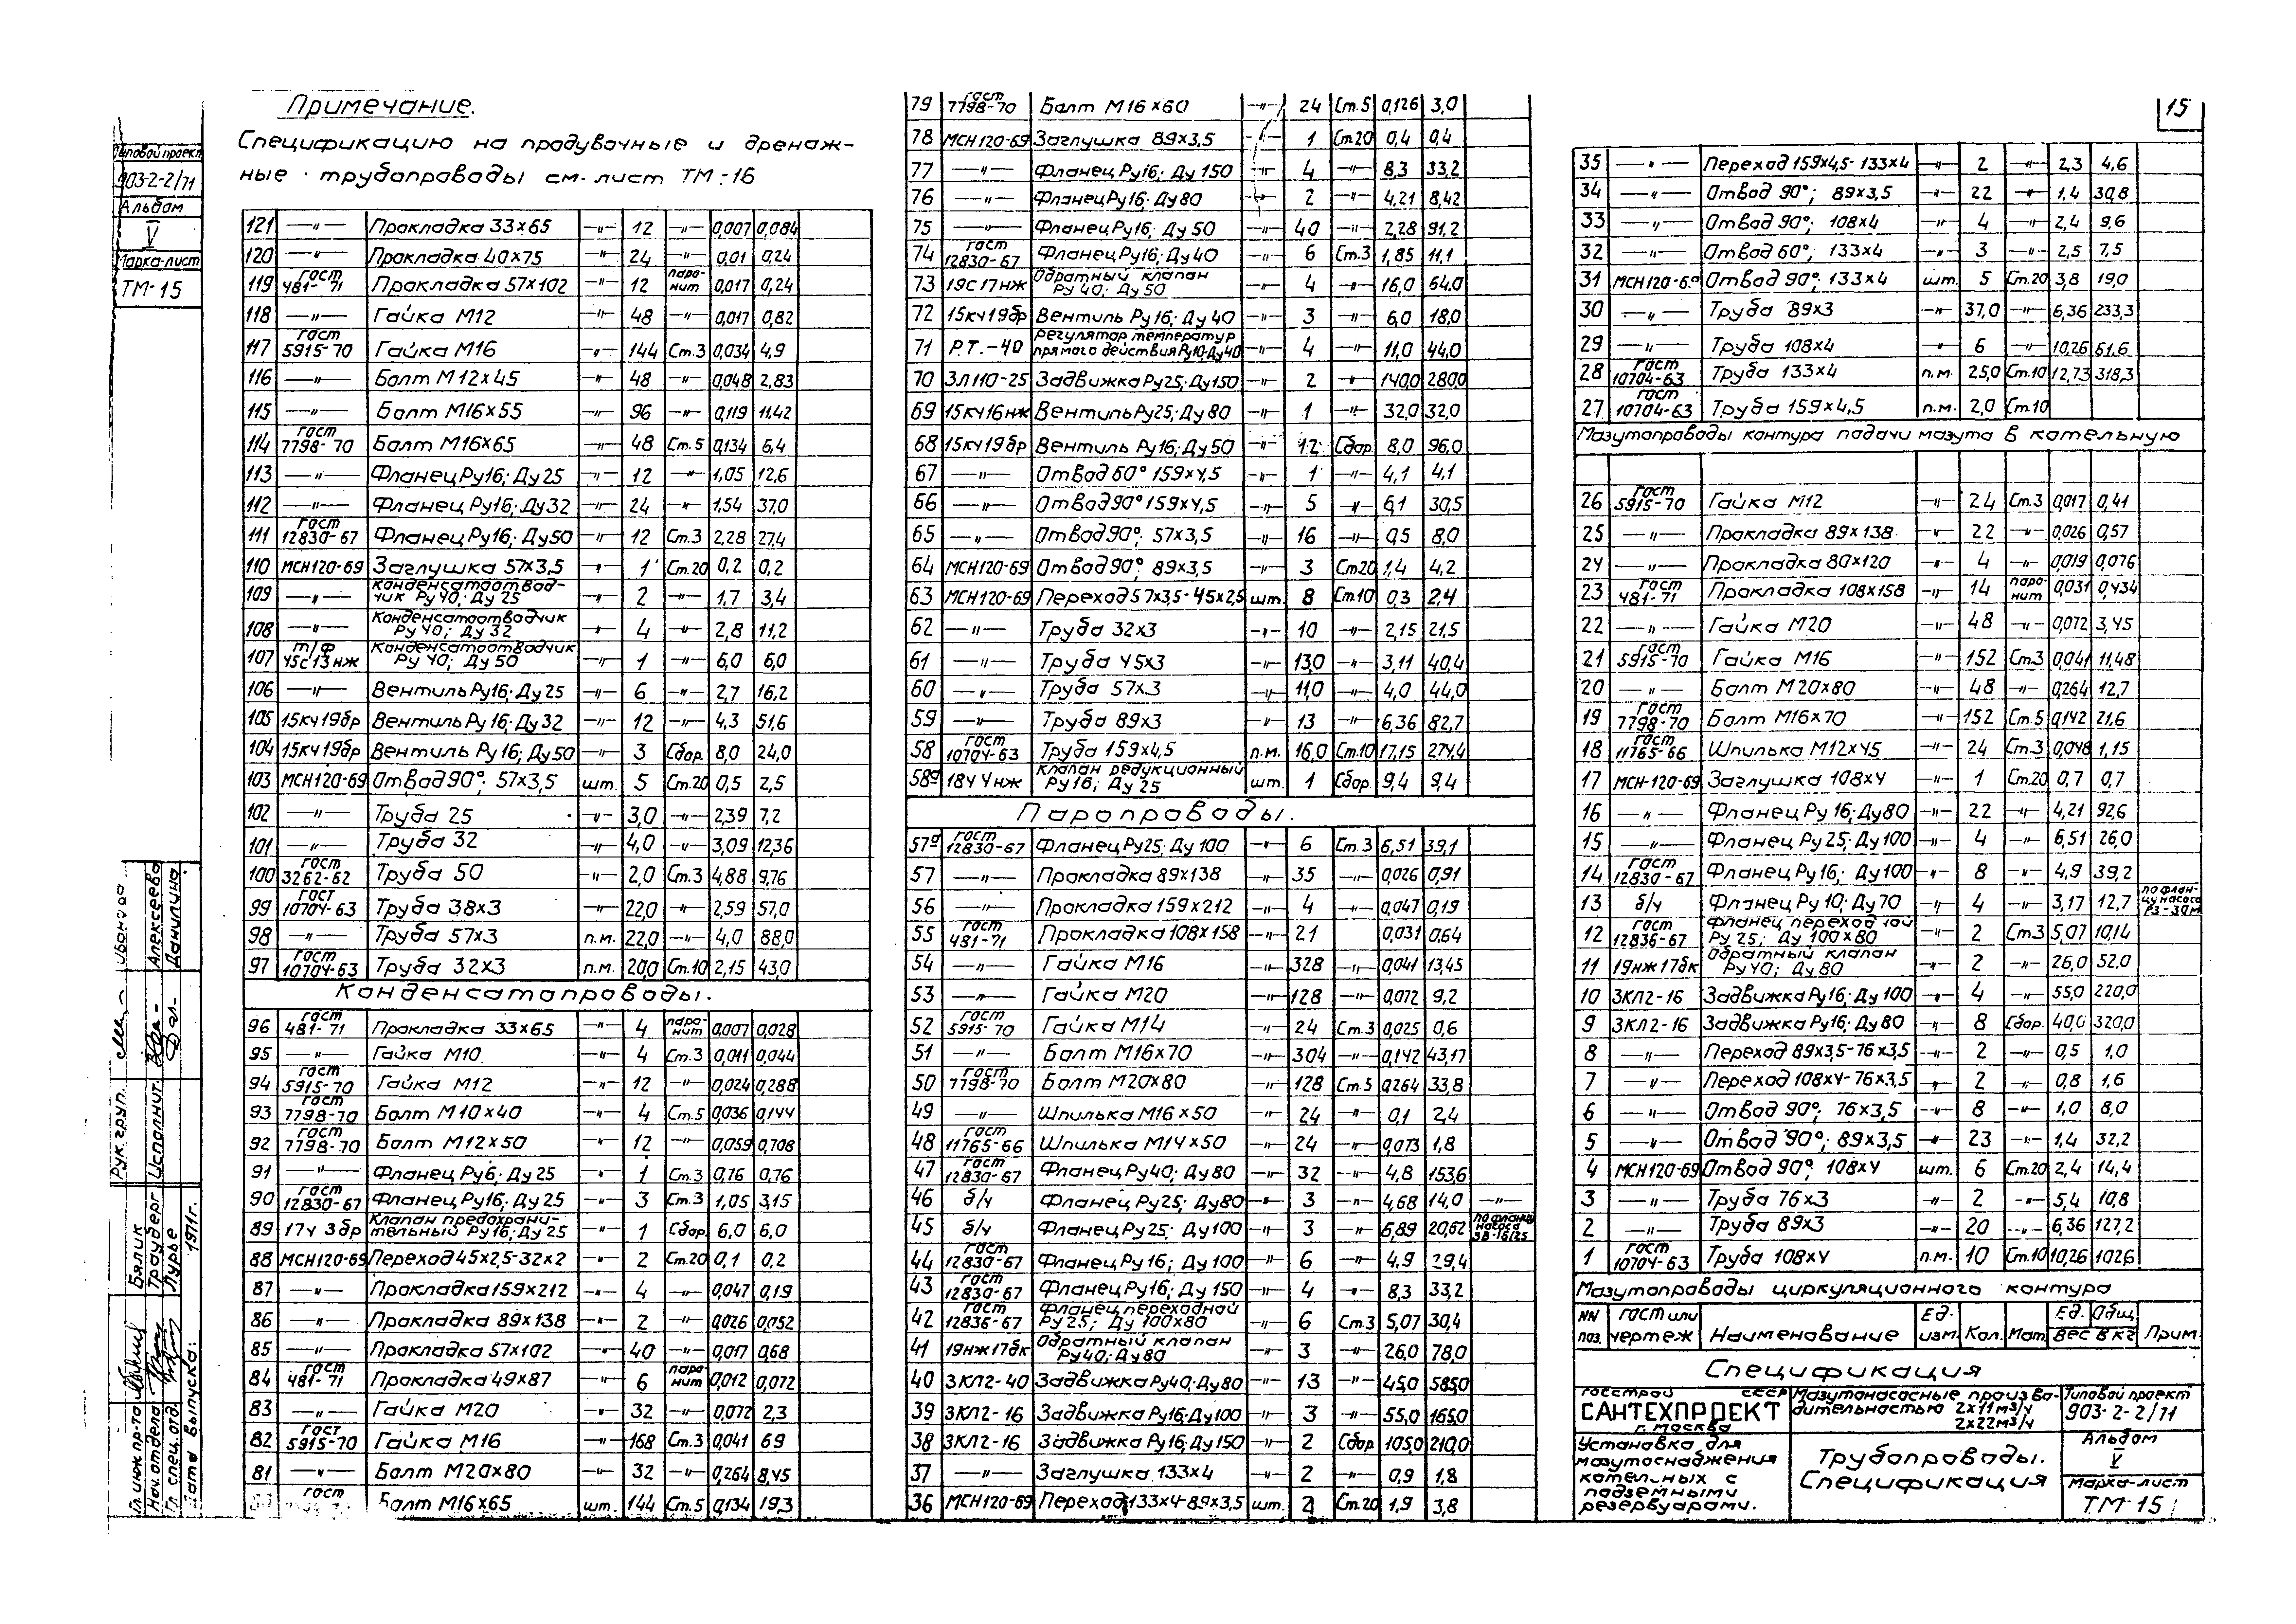 Примечание.
Спецификацию на продувочные и дренаж-
ные трубопроводы см. лист ТМ-16
121 —"— Прокладка 33х65 —"— 12 —"— 0,007 0,084
120 —"— Прокладка 40х75 —"— 24 —"— 0,01 0,24
119 гост 481-71 Прокладка 57х102 —"— 12 паронит 0,017 0,24
118 —"— Гайка М12 —"— 48 —"— 0,017 0,82
117 гост 5915-70 Гайка М16 —"— 144 Ст.3 0,034 4,9
116 —"— Болт М12х45 —"— 48 —"— 0,048 2,83
115 —"— Болт М16х55 —"— 96 —"— 0,119 11,42
114 гост 7798-70 Болт М16х65 —"— 48 Ст.5 0,134 6,4
113 —"— Фланец Ру16; Ду25 —"— 12 —"— 1,05 12,6
112 —"— Фланец Ру16; Ду32 —"— 24 —"— 1,54 37,0
111 гост 12830-67 Фланец Ру16; Ду50 —"— 12 Ст.3 2,28 27,4
110 МСН120-69 Заглушка 57х3,5 —"— 1 Ст.20 0,2 0,2
109 —"— Конденсатоотводчик Ру40; Ду25 —"— 2 —"— 1,7 3,4
108 —"— Конденсатоотводчик Ру40; Ду32 —"— 4 —"— 2,8 11,2
107 т/ф 45с13нж Конденсатоотводчик Ру40; Ду50 —"— 1 —"— 6,0 6,0
106 —"— Вентиль Ру16; Ду25 —"— 6 —"— 2,7 16,2
105 15кч19бр Вентиль Ру16; Ду32 —"— 12 —"— 4,3 51,6
104 15кч19бр Вентиль Ру16; Ду50 —"— 3 Сбор. 8,0 24,0
103 МСН120-69 Отвод 90°; 57х3,5 шт. 5 Ст.20 0,5 2,5
102 —"— Труба 25 —"— 3,0 —"— 2,39 7,2
101 —"— Труба 32 —"— 4,0 —"— 3,09 12,36
100 гост 3262-62 Труба 50 —"— 2,0 Ст.3 4,88 9,76
99 гост 10704-63 Труба 38х3 —"— 22,0 —"— 2,59 57,0
98 —"— Труба 57х3 п.м. 22,0 —"— 4,0 88,0
97 гост 10704-63 Труба 32х3 п.м. 20,0 Ст.10 2,15 43,0
Конденсатопроводы.
96 гост 481-71 Прокладка 33х65 —"— 4 паронит 0,007 0,028
95 —"— Гайка М10 —"— 4 Ст.3 0,011 0,044
94 гост 5915-70 Гайка М12 —"— 12 —"— 0,024 0,288
93 гост 7798-70 Болт М10х40 —"— 4 Ст.5 0,036 0,144
92 гост 7798-70 Болт М12х50 —"— 12 —"— 0,059 0,708
91 —"— Фланец Ру6; Ду25 —"— 1 Ст.3 0,76 0,76
90 гост 12830-67 Фланец Ру16; Ду25 —"— 3 Ст.3 1,05 3,15
89 17ч3бр Клапан предохранительный Ру16; Ду25 —"— 1 Сбор. 6,0 6,0
88 МСН120-69 Переход 45х2,5-32х2 —"— 2 Ст.20 0,1 0,2
87 —"— Прокладка 159х212 —"— 4 —"— 0,047 0,19
86 —"— Прокладка 89х138 —"— 2 —"— 0,026 0,052
85 —"— Прокладка 57х102 —"— 40 —"— 0,017 0,68
84 гост 481-71 Прокладка 49х87 —"— 6 паронит 0,012 0,072
83 —"— Гайка М20 —"— 32 —"— 0,072 2,3
82 гост 5915-70 Гайка М16 —"— 168 Ст.3 0,041 69
81 —"— Болт М20х80 —"— 32 —"— 0,264 8,45
гост Болт М16х65 шт. 144 Ст.5 0,134 19,3
79 гост 7798-70 Болт М16х60 —"— 24 Ст.5 0,126 3,0
78 МСН120-69 Заглушка 89х3,5 —"— 1 Ст.20 0,4 0,4
77 —"— Фланец Ру16; Ду150 —"— 4 —"— 8,3 33,2
76 —"— Фланец Ру16; Ду80 —"— 2 —"— 4,21 8,42
75 —"— Фланец Ру16; Ду50 —"— 40 —"— 2,28 91,2
74 гост 12830-67 Фланец Ру16; Ду40 —"— 6 Ст.3 1,85 11,1
73 19с17нж Обратный клапан Ру40; Ду50 —"— 4 —"— 16,0 64,0
72 15кч19бр Вентиль Ру16; Ду40 —"— 3 —"— 6,0 18,0
71 Р.Т.-40 Регулятор температур прямого действия Ру10; Ду40 —"— 4 —"— 11,0 44,0
70 ЗЛ110-25 Задвижка Ру25; Ду150 —"— 2 —"— 140,0 280,0
69 15кч16нж Вентиль Ру25; Ду80 —"— 1 —"— 32,0 32,0
68 15кч19бр Вентиль Ру16; Ду50 —"— 12 Сбор. 8,0 96,0
67 —"— Отвод 60° 159х4,5 —"— 1 —"— 4,1 4,1
66 —"— Отвод 90° 159х4,5 —"— 5 —"— 6,1 30,5
65 —"— Отвод 90°; 57х3,5 —"— 16 —"— 0,5 8,0
64 МСН120-69 Отвод 90°; 89х3,5 —"— 3 Ст.20 1,4 4,2
63 МСН120-69 Переход 57х3,5-45х2,5 шт. 8 Ст.10 0,3 2,4
62 —"— Труба 32х3 —"— 10 —"— 2,15 21,5
61 —"— Труба 45х3 —"— 13,0 —"— 3,11 40,4
60 —"— Труба 57х3 —"— 11,0 —"— 4,0 44,0
59 —"— Труба 89х3 —"— 13 —"— 6,36 82,7
58 гост 10704-63 Труба 159х4,5 п.м. 16,0 Ст.10 17,15 274,4
58а 18ч4нж Клапан редукционный Ру16; Ду25 шт. 1 Сбор. 9,4 9,4
Паропроводы.
57а гост 12830-67 Фланец Ру25; Ду100 —"— 6 Ст.3 6,51 39,1
57 —"— Прокладка 89х138 —"— 35 —"— 0,026 0,91
56 —"— Прокладка 159х212 —"— 4 —"— 0,047 0,19
55 гост 481-71 Прокладка 108х158 —"— 21 0,031 0,64
54 —"— Гайка М16 —"— 328 —"— 0,041 13,45
53 —"— Гайка М20 —"— 128 —"— 0,072 9,2
52 гост 5915-70 Гайка М14 —"— 24 Ст.3 0,025 0,6
51 —"— Болт М16х70 —"— 304 —"— 0,142 43,17
50 гост 7798-70 Болт М20х80 —"— 128 Ст.5 0,264 33,8
49 —"— Шпилька М16х50 —"— 24 —"— 0,1 2,4
48 гост 11765-66 Шпилька М14х50 —"— 24 —"— 0,073 1,8
47 гост 12830-67 Фланец Ру40; Ду80 —"— 32 —"— 4,8 153,6
46 б/ч Фланец Ру25; Ду80 —"— 3 —"— 4,68 14,0 —"—
45 б/ч Фланец Ру25; Ду100 —"— 3 —"— 6,89 20,62 по фланцу насоса 3В-16/25
44 гост 12830-67 Фланец Ру16; Ду100 —"— 6 —"— 4,9 29,4
43 гост 12830-67 Фланец Ру16; Ду150 —"— 4 —"— 8,3 33,2
42 гост 12836-67 Фланец переходной Ру25; Ду100х80 —"— 6 Ст.3 5,07 30,4
41 19нж17бк Обратный клапан Ру40; Ду80 —"— 3 —"— 26,0 78,0
40 ЗКЛ2-40 Задвижка Ру40; Ду80 —"— 13 —"— 45,0 585,0
39 ЗКЛ2-16 Задвижка Ру16; Ду100 —"— 3 —"— 55,0 165,0
38 ЗКЛ2-16 Задвижка Ру16; Ду150 —"— 2 Сбор. 105,0 210,0
37 —"— Заглушка 133х4 —"— 2 —"— 0,9 1,8
36 МСН120-69 Переход 133х4-89х3,5 шт. 2 Ст.20 1,9 3,8
15
35 —"— Переход 159х4,5-133х4 —"— 2 —"— 2,3 4,6
34 —"— Отвод 90°; 89х3,5 —"— 22 —"— 1,4 30,8
33 —"— Отвод 90°; 108х4 —"— 4 —"— 2,4 9,6
32 —"— Отвод 60°; 133х4 —"— 3 —"— 2,5 7,5
31 МСН120-69 Отвод 90°; 133х4 шт. 5 Ст.20 3,8 19,0
30 —"— Труба 89х3 —"— 37,0 —"— 6,36 233,3
29 —"— Труба 108х4 —"— 6 —"— 10,26 61,6
28 гост 10704-63 Труба 133х4 п.м. 25,0 Ст.10 12,73 318,3
27 гост 10704-63 Труба 159х4,5 п.м. 2,0 Ст.10
Мазутопроводы контура подачи мазута в котельную
26 гост 5915-70 Гайка М12 —"— 24 Ст.3 0,017 0,41
25 —"— Прокладка 89х138 —"— 22 —"— 0,026 0,57
24 —"— Прокладка 80х120 —"— 4 —"— 0,019 0,076
23 гост 481-71 Прокладка 108х158 —"— 14 паронит 0,031 0,434
22 —"— Гайка М20 —"— 48 —"— 0,072 3,45
21 гост 5915-70 Гайка М16 —"— 152 Ст.3 0,041 11,48
20 —"— Болт М20х80 —"— 48 —"— 0,264 12,7
19 гост 7798-70 Болт М16х70 —"— 152 Ст.5 0,142 21,6
18 гост 11765-66 Шпилька М12х45 —"— 24 Ст.3 0,048 1,15
17 МСН-120-69 Заглушка 108х4 —"— 1 Ст.20 0,7 0,7
16 —"— Фланец Ру16; Ду80 —"— 22 —"— 4,21 92,6
15 —"— Фланец Ру25; Ду100 —"— 4 —"— 6,51 26,0
14 гост 12830-67 Фланец Ру16; Ду100 —"— 8 —"— 4,9 39,2
13 б/ч Фланец Ру10; Ду70 —"— 4 —"— 3,17 12,7 по фланцу насоса РЗ-30м
12 гост 12836-67 Фланец переходной Ру25; Ду100х80 —"— 2 Ст.3 5,07 10,14
11 19нж17бк Обратный клапан Ру40; Ду80 —"— 2 —"— 26,0 52,0
10 ЗКЛ2-16 Задвижка Ру16; Ду100 —"— 4 —"— 55,0 220,0
9 ЗКЛ2-16 Задвижка Ру16; Ду80 —"— 8 Сбор. 40,0 320,0
8 —"— Переход 89х3,5-76х3,5 —"— 2 —"— 0,5 1,0
7 —"— Переход 108х4-76х3,5 —"— 2 —"— 0,8 1,6
6 —"— Отвод 90°; 76х3,5 —"— 8 —"— 1,0 8,0
5 —"— Отвод 90°; 89х3,5 —"— 23 —"— 1,4 32,2
4 МСН120-69 Отвод 90°; 108х4 шт. 6 Ст.20 2,4 14,4
3 —"— Труба 76х3 —"— 2 —"— 5,4 10,8
2 —"— Труба 89х3 —"— 20 —"— 6,36 127,2
1 гост 10704-63 Труба 108х4 п.м. 10 Ст.10 10,26 102,6
Мазутопроводы циркуляционного контура
NN поз. гост или чертеж Наименование Ед. изм. Кол. Мат. Ед. Общ. вес в кг Прим.
Спецификация
Госстрой СССР
САНТЕХПРОЕКТ
г. Москва
Мазутонасосные произво-
дительностью 2х11м³/ч
2х22м³/ч
Типовой проект
903-2-2/71
Установка для
мазутоснабжения
котельных с
подземными
резервуарами.
Трубопроводы.
Спецификация
Альбом
V
Марка-лист
ТМ-15
Типовой проект
903-2-2/71
Альбом
V
Марка-лист
ТМ-15
Рук. груп. Иванова
Исполнит. Алексеева
Данилина
Гл. инж. пр-та Бялик
Нач. отдела Трауберг
Гл. спец. отд. Лурье
Дата выпуска: 1971г.